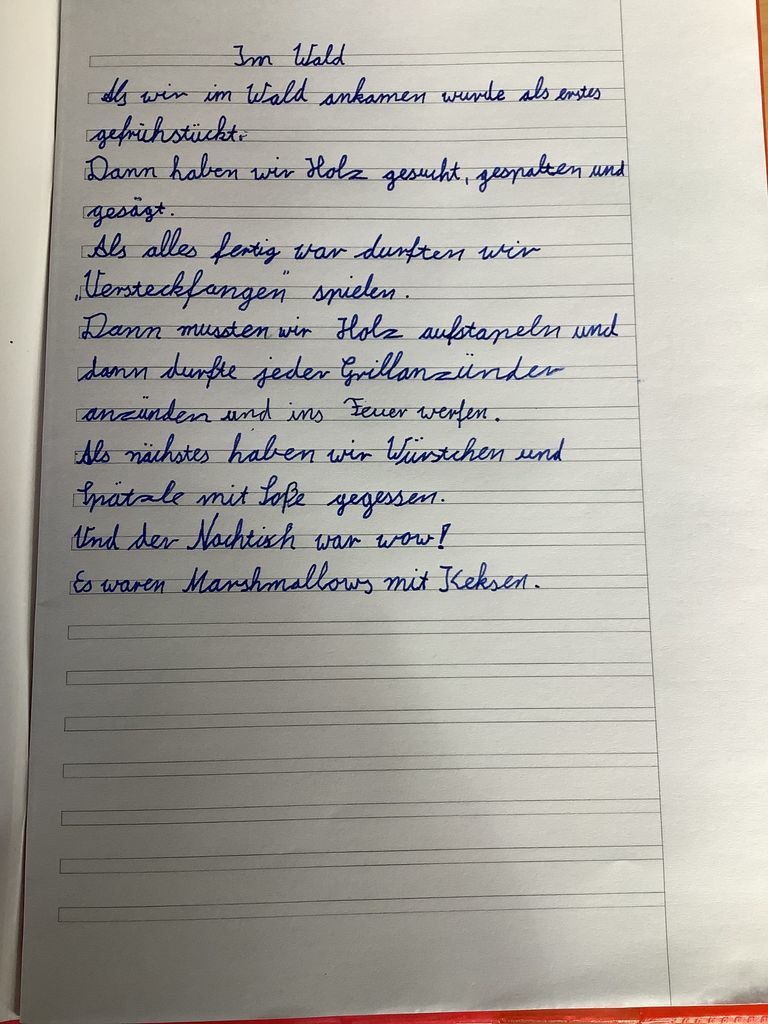 Im Wald
Als wir im Wald ankamen wurde als erstes
gefrühstückt.
Dann haben wir Holz gesucht, gespalten und
gesägt.
Als alles fertig war durften wir
„Versteckfangen" spielen.
Dann mussten wir Holz aufstapeln und
dann durfte jeder Grillanzünder
anzünden und ins Feuer werfen.
Als nächstes haben wir Würstchen und
Spätzle mit Soße gegessen.
Und der Nachtisch war wow!
Es waren Marshmallows mit Keksen.